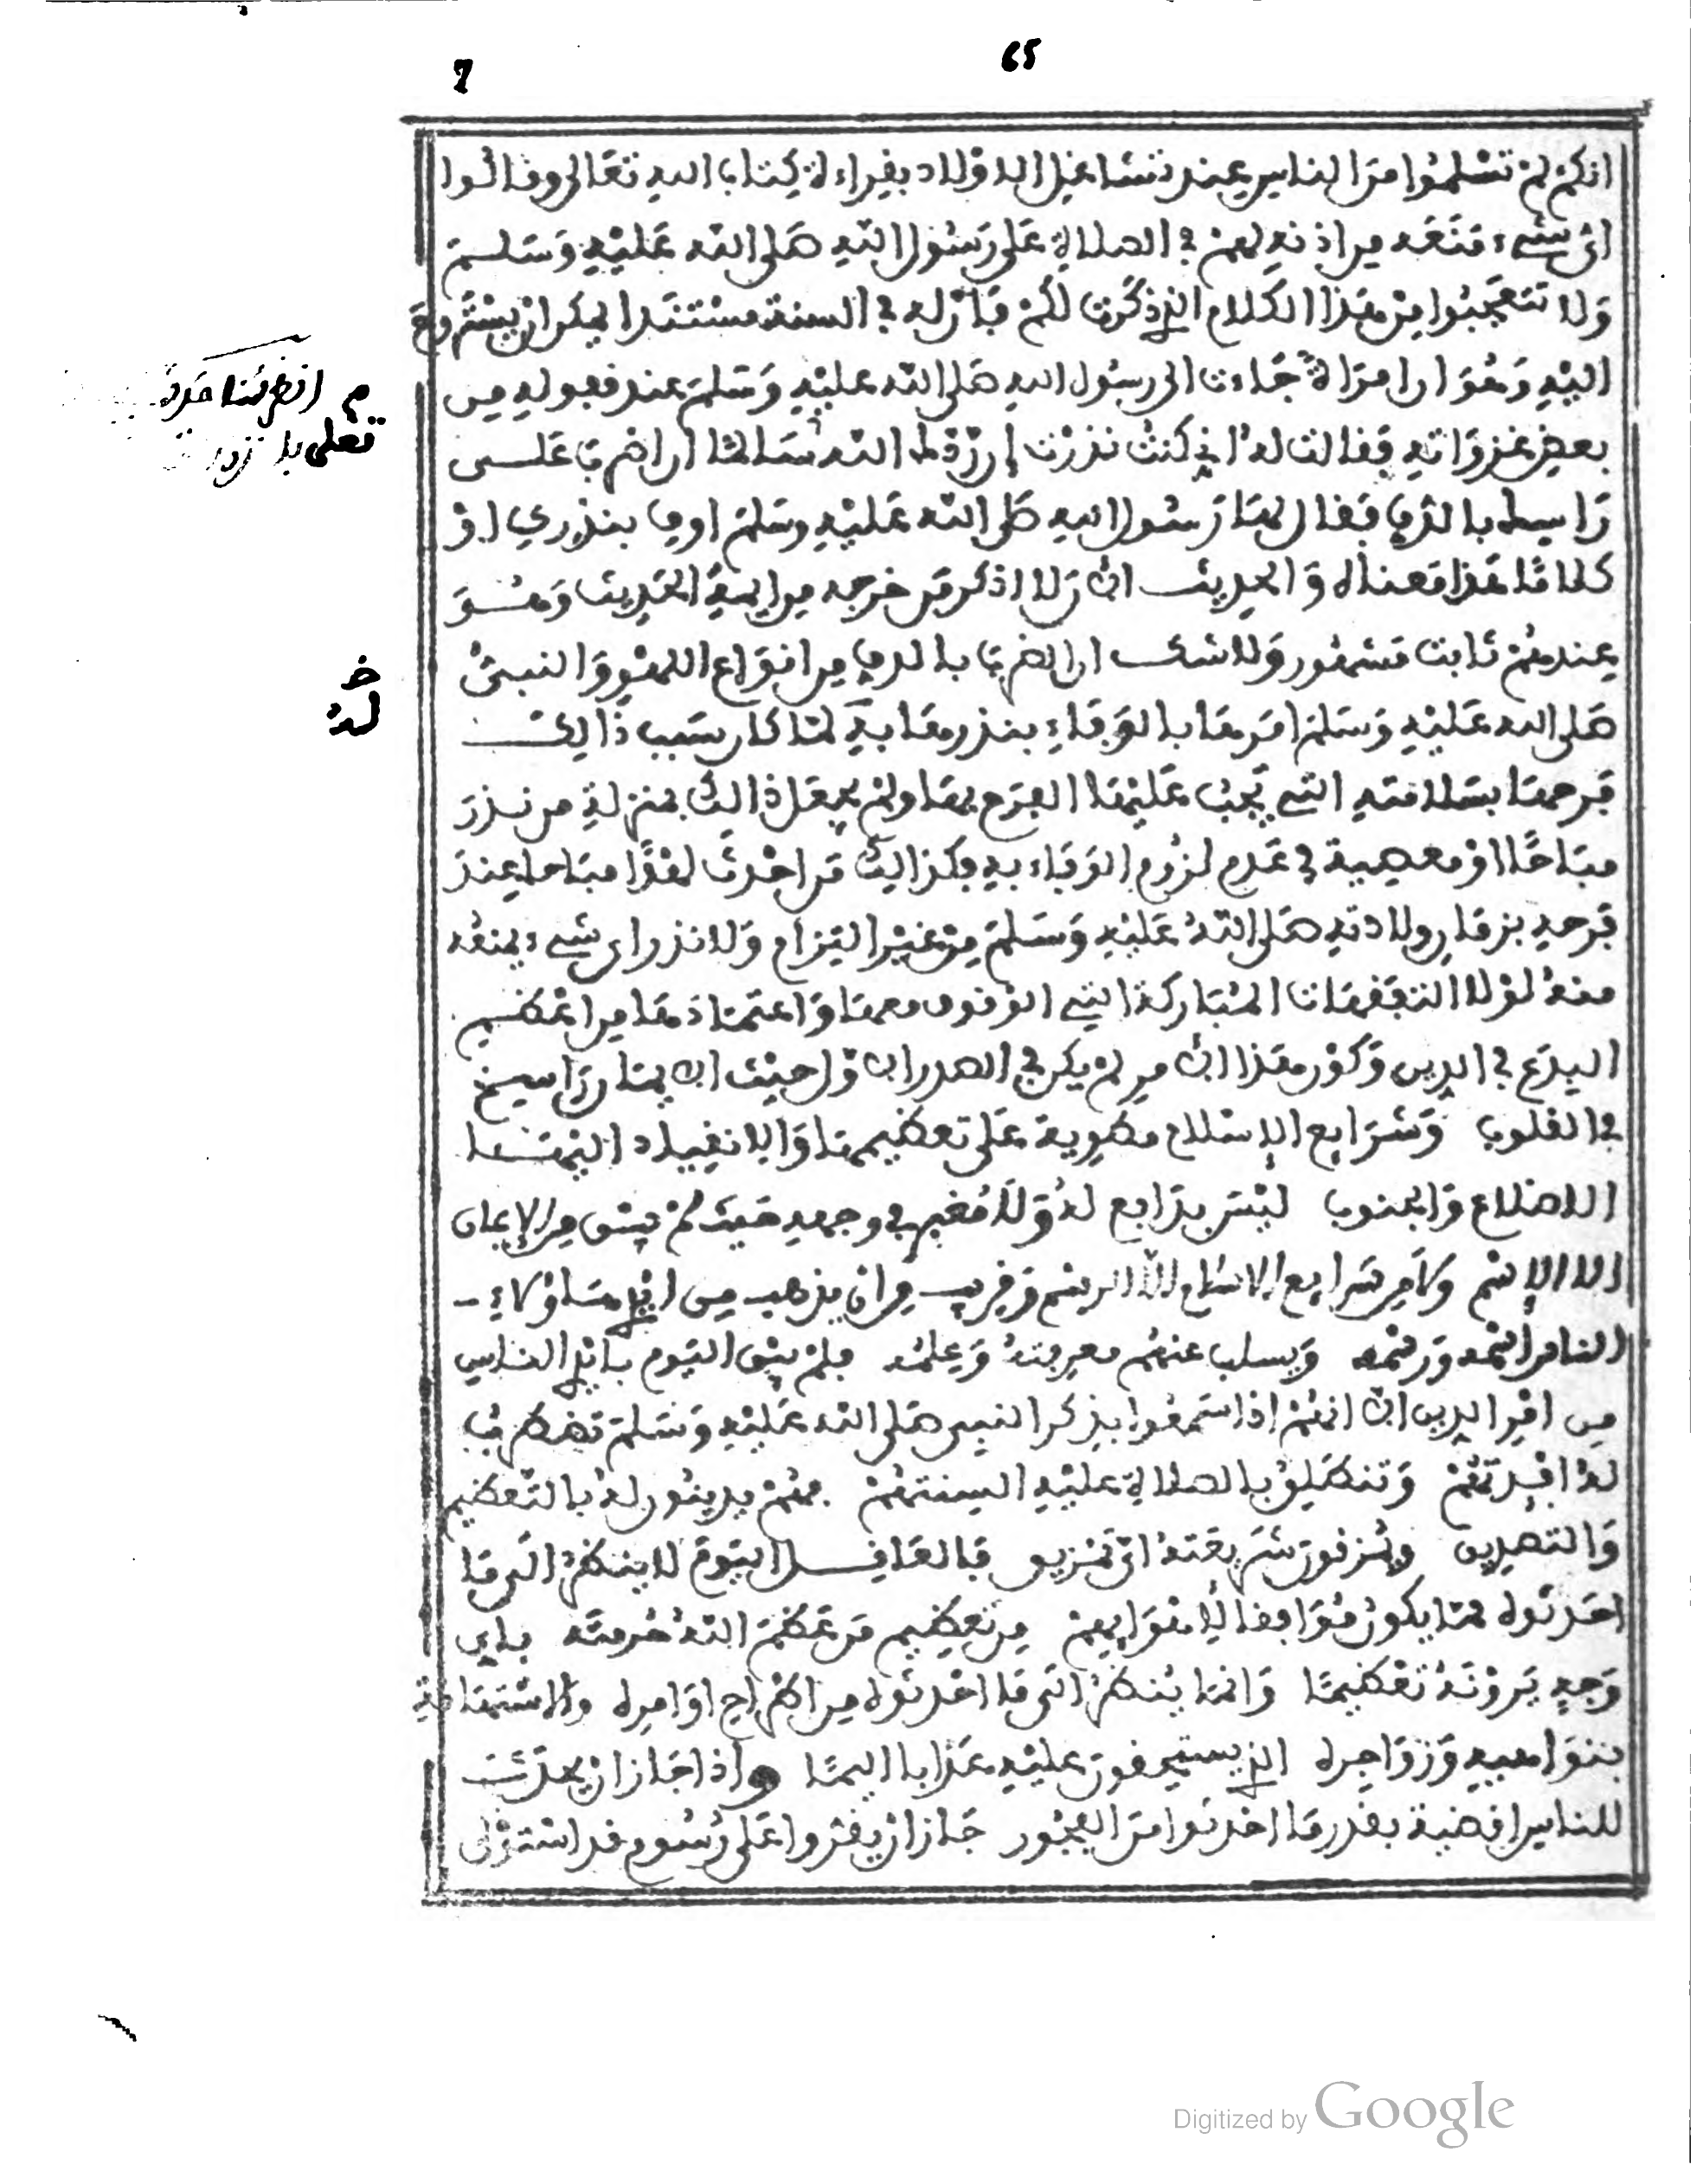 65
7
انكم لن تسلموا من الناس عند تشاغل الاولاد بقراءة كتاب الله تعالى وقالوا
اى شىء منعه من اذنه لهن في الصلاة على رسول الله صلى الله عليه وسلم
ولا تتعجبوا من هذا الكلام الذي ذكرت لكم فان له في السنة مستندا يمكن ان يستروح
اليه وهو ان امراة جاءت الى رسول الله صلى الله عليه وسلم عند قفوله من
بعض غزواته فقالت له اني كنت نذرت ان ردك الله سالما ان اضرب على
راسك بالدف فقال لها رسول الله صلى الله عليه وسلم اوف بنذرك او
كلاما هذا معناه والحديث الان لا اذكر من خرجه من ايمة الحديث وهو
عندهم ثابت مشهور ولا شك ان الضرب بالدف من انواع اللهو والنبى
صلى الله عليه وسلم امرها بالوفاء بنذرها به لما كان سبب ذالك
فرحها بسلامته التى يجب عليها الفرح بها ولم يجعل ذالك بمنزلة من نذر
مباحا او معصية في عدم لزوم الوفاء به فكذالك من احدث لهوا مباحا عند
فرحه بزمان ولادته صلى الله عليه وسلم من غير التزام ولا نذر اى شىء يمنعه
منه لولا التفقهات المباركة التى الوقوف معها واعتمادها من اعظم
البدع في الدين وكون هذا الان من لم يكن في الصدر الاول حيث الايمان راسخ
في القلوب وشرايع الاسلام مطوية على تعظيمها والانقياد اليها
الاضلاع والجنوب ليس بدافع له ولا مغبر في وجهه حيث لم يبق من الايمان
الا الاسم ولا من شرايع الاسلام الا الرسم وقريب من ان يذهب من ايدي هاؤلاء
الناس اسمه ورسمه ويسلب عنهم معرفته وعلمه فلم يبق اليوم بايدي الناس
من امر الدين الا انهم اذا سمعوا بذكر النبى صلى الله عليه وسلم تضطرب
له افئدتهم وتنطلق بالصلاة عليه السنتهم فهم يدينون له بالتعظيم
والتصديق ويمزقون شريعته اى تمزيق فالعاقل اليوم لا ينظر الى ما
احدثوه مما يكون موافقا لاهوايهم من تعظيم من عظم الله حرمته باي
وجه يرونه تعظيما وانما ينظر الى ما احدثوه من اطراح اوامره والاستهانة
بنواهيه وزواجره الذي يستحقون عليه عذابا اليما واذا جاز ان يحدث
للناس اقضية بقدر ما احدثوا من الفجور جاز ان يقروا على رسوم قد استولى
خ
له